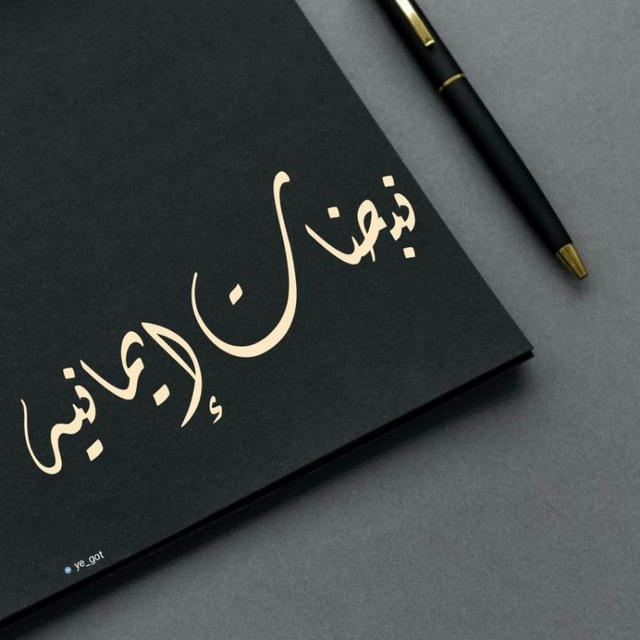 نبضات إيمانيه
ye_got